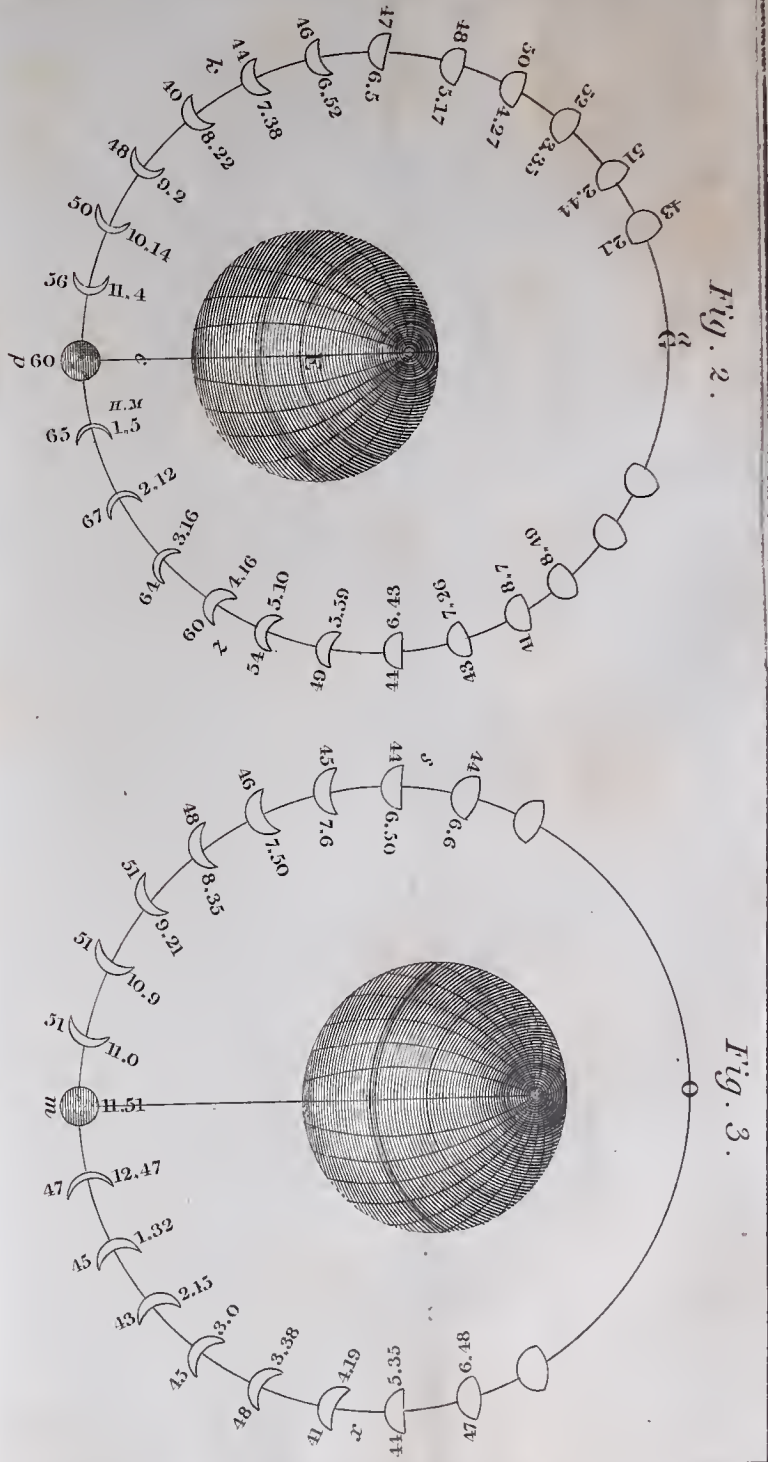 Fig. 2.
47
6.5
48
5.17
50
4.27
52
3.35
51
2.44
43
2.1
a
G
46
6.52
44
7.38
k
40
8.22
48
9.2
50
10.14
56
11.4
p 60
e
E
H.M
65
1.5
67
2.12
64
3.16
60
4.16
z
54
5.10
49
5.59
44
6.43
43
7.26
41
8.7
8.49
Fig. 3.
O
44
6.6
s
44
6.50
45
7.6
46
7.50
48
8.35
51
9.21
51
10.9
51
11.0
m
11.51
47
12.47
45
1.32
43
2.15
45
3.0
48
3.38
41
4.19
x
44
5.35
47
6.48